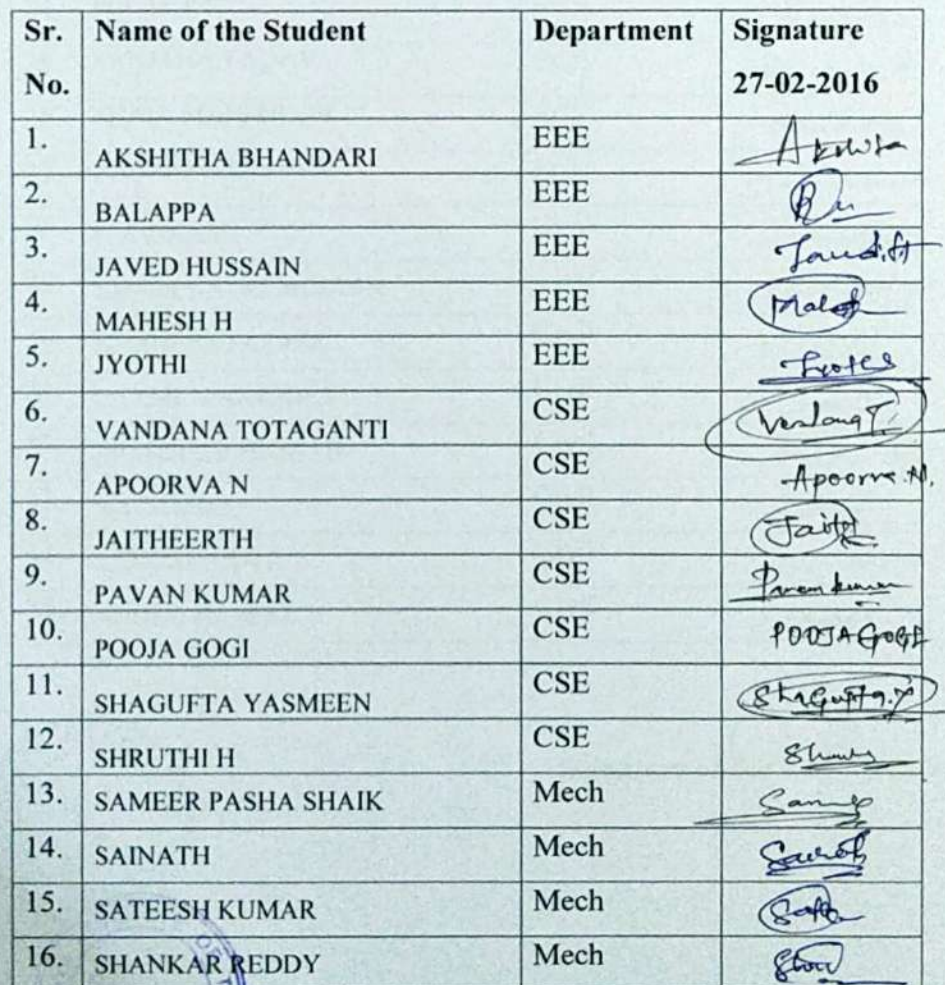 Sr. Name of the Student Department Signature
No. 27-02-2016
1. AKSHITHA BHANDARI EEE
2. BALAPPA EEE
3. JAVED HUSSAIN EEE
4. MAHESH H EEE
5. JYOTHI EEE
6. VANDANA TOTAGANTI CSE Vandana T.
7. APOORVA N CSE Apoorva.N.
8. JAITHEERTH CSE
9. PAVAN KUMAR CSE Pavan kumar
10. POOJA GOGI CSE POOJA GOGI
11. SHAGUFTA YASMEEN CSE Shagufta.Y
12. SHRUTHI H CSE
13. SAMEER PASHA SHAIK Mech
14. SAINATH Mech
15. SATEESH KUMAR Mech
16. SHANKAR REDDY Mech